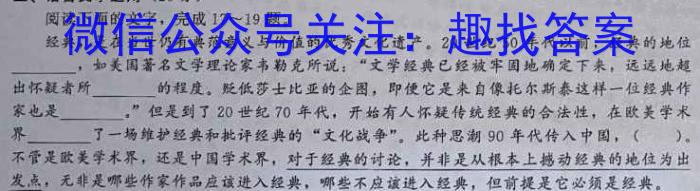 阅读下面的文字,完成17~19题。
微信公众号关注:趣找答案
经典是在当今仍有典范意义与价值的优秀文化遗产。20世纪70年代以前,经典的地位
______,如美国著名文学理论家韦勒克所说:“文学经典已经被牢固地确定下来,远远地超
出怀疑者所______的程度。贬低莎士比亚的企图,即便它是来自像托尔斯泰这样一位经典作
家也是______。”但是到了20世纪70年代,开始有人怀疑传统经典的合法性,在欧美学术
界______了一场维护经典和批评经典的“文化战争”。此种思潮90年代传入中国,(    )。
不管是欧美学术界,还是中国学术界,对于经典的讨论,并非是从根本上撼动经典的地位为出
发点,无非是哪些作家作品应该进入经典,哪些不应该进入经典,但前提是它必须是经典。